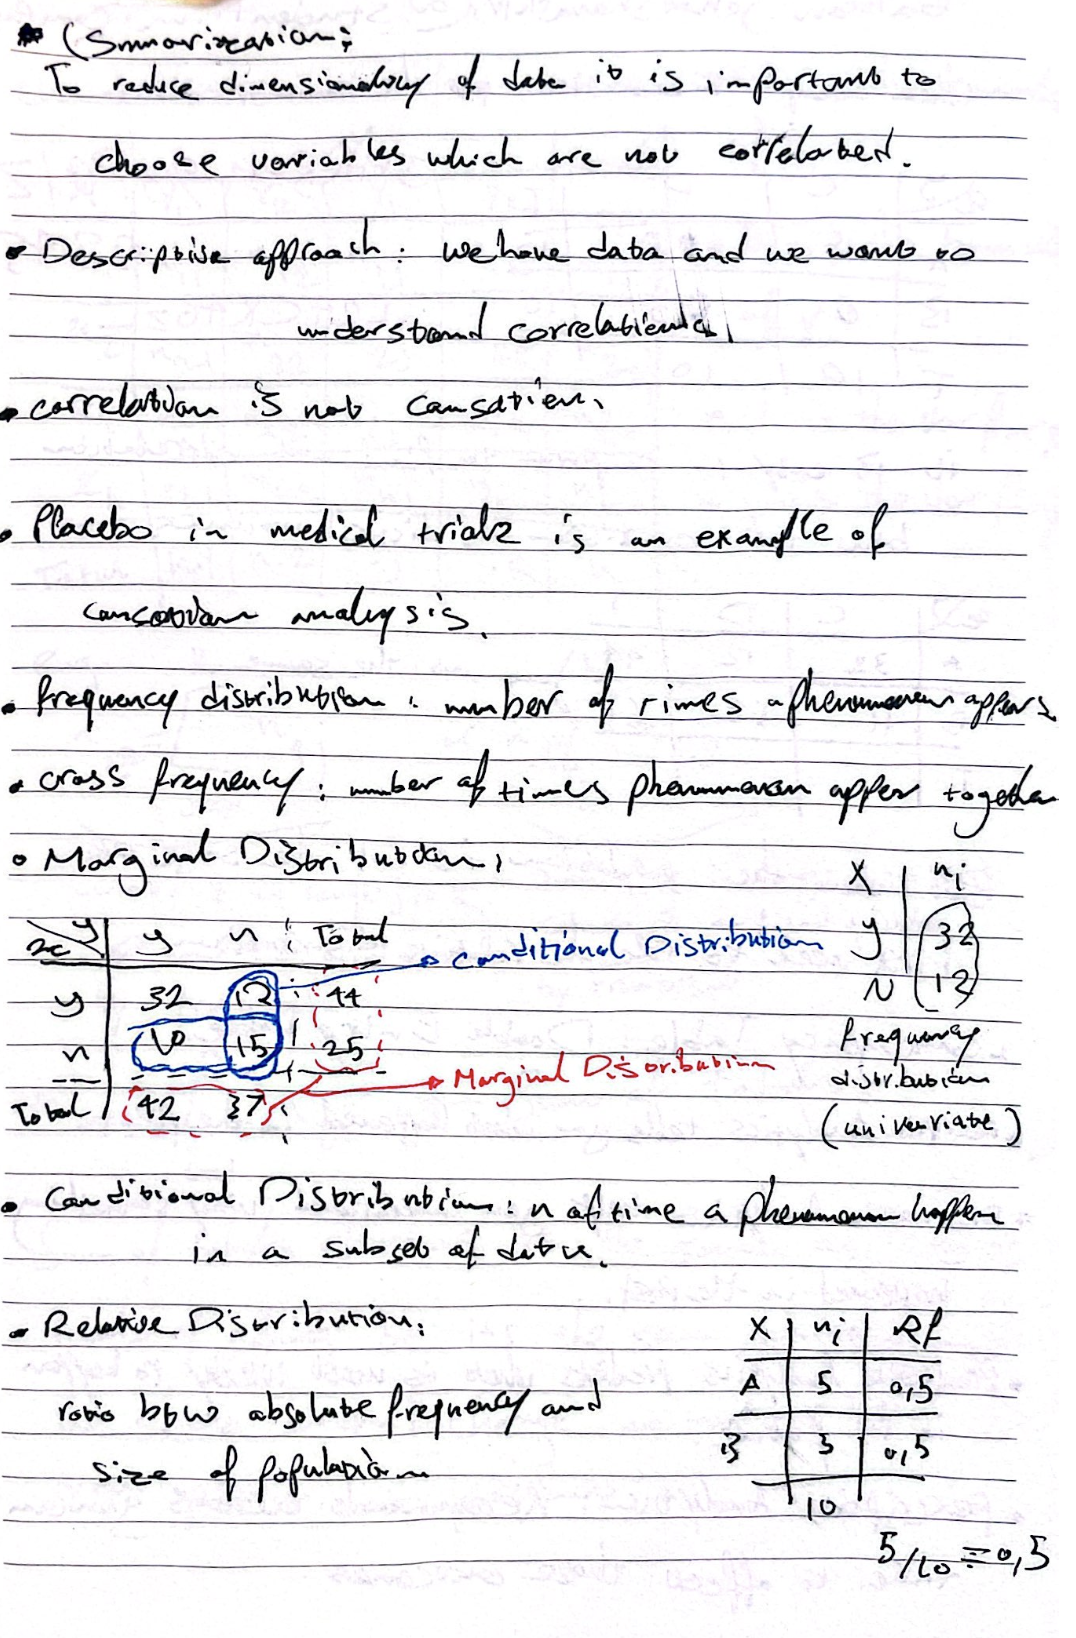 (Summarization:
To reduce dimensionality of data it is important to
choose variables which are not correlated.
• Descriptive approach: we have data and we want to
understand correlation
• correlation is not causation.
• Placebo in medical trials is an example of
causation analysis.
• frequency distribution: number of times a phenomenon appears
• cross frequency: number of times phenomenon apper together
• Marginal Distribution:
X | ni
y | 32
N | 12
frequency
distribution
(univariate)
x y | y n Total
y 32 12 44
n 10 15 25
Total 42 27
Conditional Distribution
Marginal Distribution
• Conditional Distribution: n of time a phenomenon happen
in a subset of data.
• Relative Distribution:
ratio btw absolute frequency and
size of population
X | ni | Rf
A | 5 | 0,5
B | 5 | 0,5
10
5/10 = 0,5